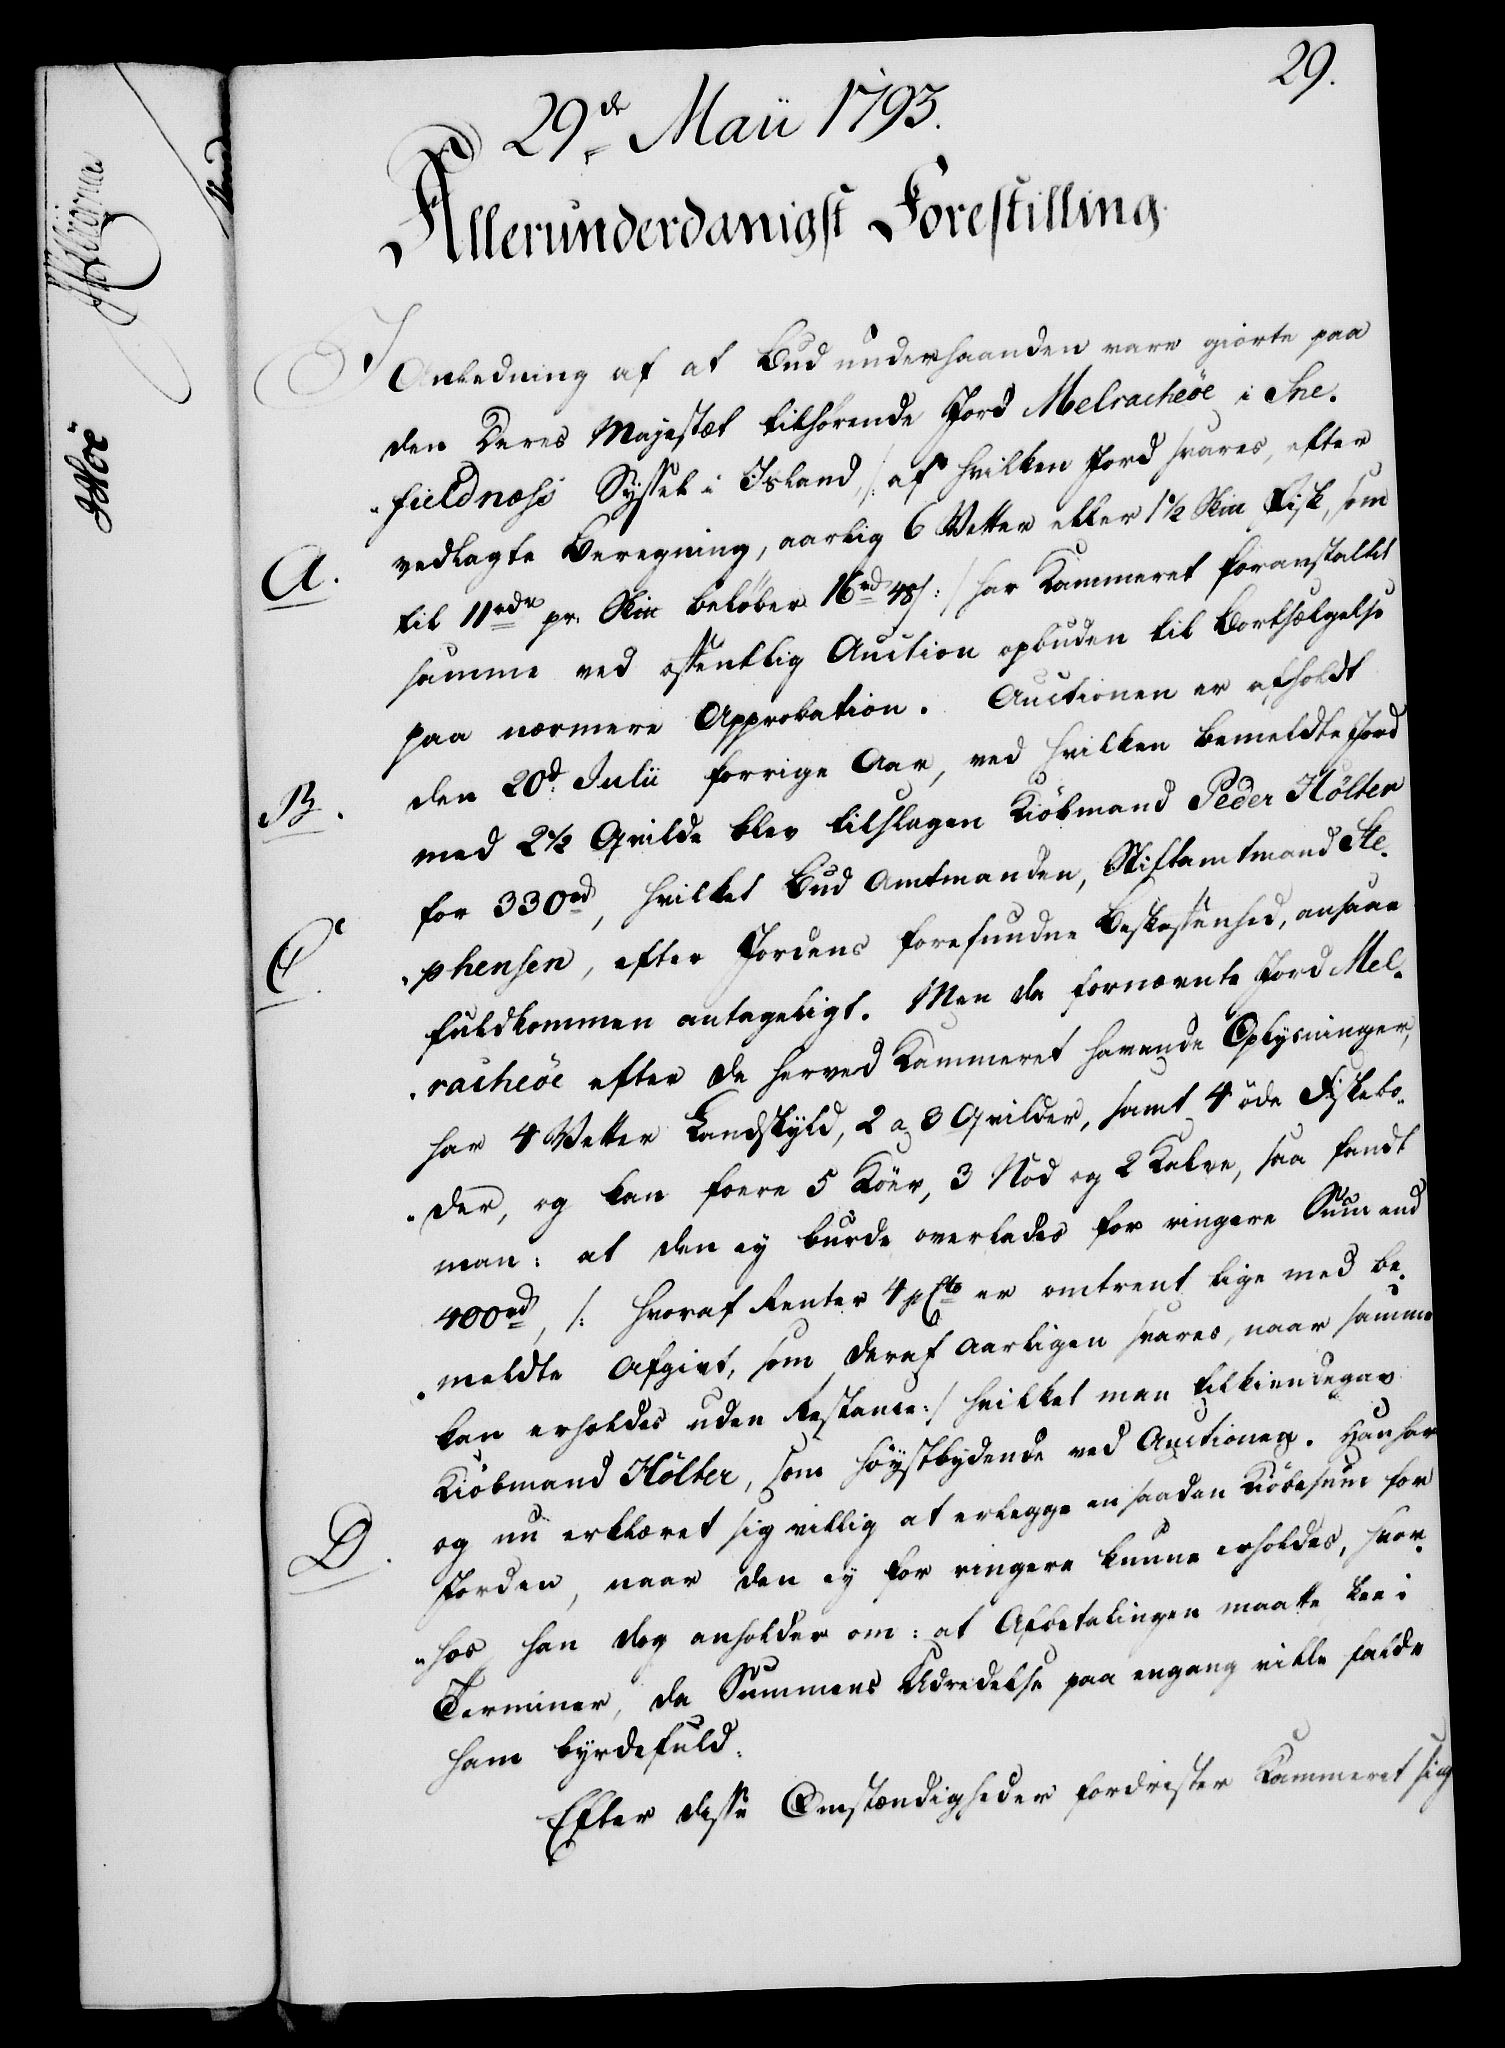 29.
29de Maii 1793.
Allerunderdanigst Forestilling.
I Anledning af at Bud underhaanden vare giorte paa
den Deres Majestæt tilhørende Jord Melracheöe i Sne-
-fieldnæss Syssel i Island, /: af hvilken Jord svares, efter
A. vedlagte Beregning, aarlig 6 Vetter eller 1½ Skƫ Fisk, som
til 11rdr pr. Skƫ beløber 16rd 48s :/ har Kammeret foranstaltet
samme ved offentlig Auction opbuden til Bortsælgelse
paa nærmere Approbation. Auctionen er afholdt
B. den 20d: Julii forrige Aar, ved hvilken bemeldte Jord
med 2½ Qvilde blev tilslagen Kiöbmand Peder Hölter
for 330rd, hvilket Bud Amtmanden, Stiftamtmand Ste-
C. -phensen, efter Jordens forefundne Beskaffenhed, ansaae
fuldkommen antageligt. Men da fornævnte Jord Mel-
-racheöe efter de herved Kammeret havende Oplysninger,
har 4 Vetter Landskyld, 2 a 3 Qvilder, samt 4 öde Fiskebo-
-der, og kan foere 5 Köer, 3 Nöd og 2 Kalve, saa fandt
man: at den ey burde overlades for ringere Sum end
400rd, /: hvoraf Renter 4 pCto er omtrent lige med be-
-meldte Afgivt, som deraf aarligen svares, naar samme
kan erholdes uden Restance :/ hvilket man tilkiendegav
Kiöbmand Hölter, som höystbydende ved Auctionen. Han har
D. og nu erklæret sig villig at erlegge en saadan Kiöbesum for
Jorden, naar den ey for ringere kunne erholdes, hvor-
-hos han dog anholder om: at Afbetalingen maatte skee i
Terminer, da Summens Udredelse paa engang ville falde
ham byrdefuld.
Efter disse Omstændigheder fordrister Kammeret sig